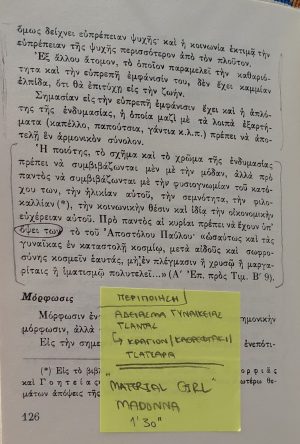 ὅμως δείχνει εὐπρέπειαν ψυχῆς· καὶ ἡ κοινωνία ἐκτιμᾷ τὴν
εὐπρέπειαν τῆς ψυχῆς περισσότερον ἀπὸ τὸν πλοῦτον.
Ἐξ ἄλλου ἄτομον, τὸ ὁποῖον παραμελεῖ τὴν καθαριό-
τητα καὶ τὴν εὐπρεπῆ ἐμφάνισίν του, δὲν ἔχει καμμίαν
ἐλπίδα, ὅτι θὰ ἐπιτύχῃ εἰς τὴν ζωήν.
Σημασίαν εἰς τὴν εὐπρεπῆ ἐμφάνισιν ἔχει καὶ ἡ ἁπλό-
της τῆς ἐνδυμασίας, ἡ ὁποία μαζὶ μὲ τὰ λοιπὰ ἐξαρτή-
ματα (καπέλλο, παπούτσια, γάντια κ.λ.π.) πρέπει νὰ ἀπο-
τελῇ ἓν ἁρμονικὸν σύνολον.
Ἡ ποιότης, τὸ σχῆμα καὶ τὸ χρῶμα τῆς ἐνδυμασίας
πρέπει νὰ συμβιβάζωνται μὲν μὲ τὴν μόδαν, ἀλλὰ πρὸ
παντὸς νὰ συμβιβάζωνται μὲ τὴν φυσιογνωμίαν τοῦ κατό-
χου των, τὴν ἡλικίαν αὐτοῦ, τὴν σεμνότητα, τὴν φιλο-
καλλίαν (*), τὴν κοινωνικὴν θέσιν καὶ ἰδίᾳ τὴν οἰκονομικὴν
εὐχέρειαν αὐτοῦ. Πρὸ παντὸς αἱ κυρίαι πρέπει νὰ ἔχουν ὑπ'
ὄψει των τὸ τοῦ Ἀποστόλου Παύλου· «ὡσαύτως καὶ τὰς
γυναῖκας ἐν καταστολῇ κοσμίῳ, μετὰ αἰδοῦς καὶ σωφρο-
σύνης κοσμεῖν ἑαυτάς, μὴ ἐν πλέγμασιν ἢ χρυσῷ ἢ μαργα-
ρίταις ἢ ἱματισμῷ πολυτελεῖ...» (Α' Ἐπ. πρὸς Τιμ. Β' 9).
Μόρφωσις
Μόρφωσιν ἐν
τημονικὴν
μόρφωσιν, ἀλλὰ
Εἰς τὴν σημε
ἐνεπότι-
(*) Εἰς τὸ βιβ
ορφιᾶς
καὶ Γοητεία
ωτέρω θε-
μάτων ἀπόψεις τῆς
126
ΠΕΡΙΠΟΙΗΣΗ
ΑΔΕΙΑΣΜΑ ΓΥΝΑΙΚΕΙΑΣ
ΤΣΑΝΤΑΣ
↳ ΚΡΑΓΙΟΝ/ΚΑΘΡΕΦΤΑΚΙ/
ΤΣΑΤΣΑΡΑ
"MATERIAL GIRL"
MADONNA
1'30"